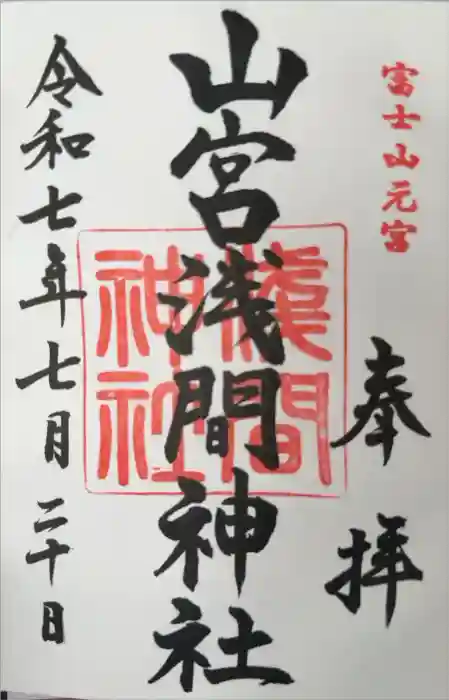 富士山元宮
奉拝
山宮浅間神社
淺間
神社
令和七年七月二十日